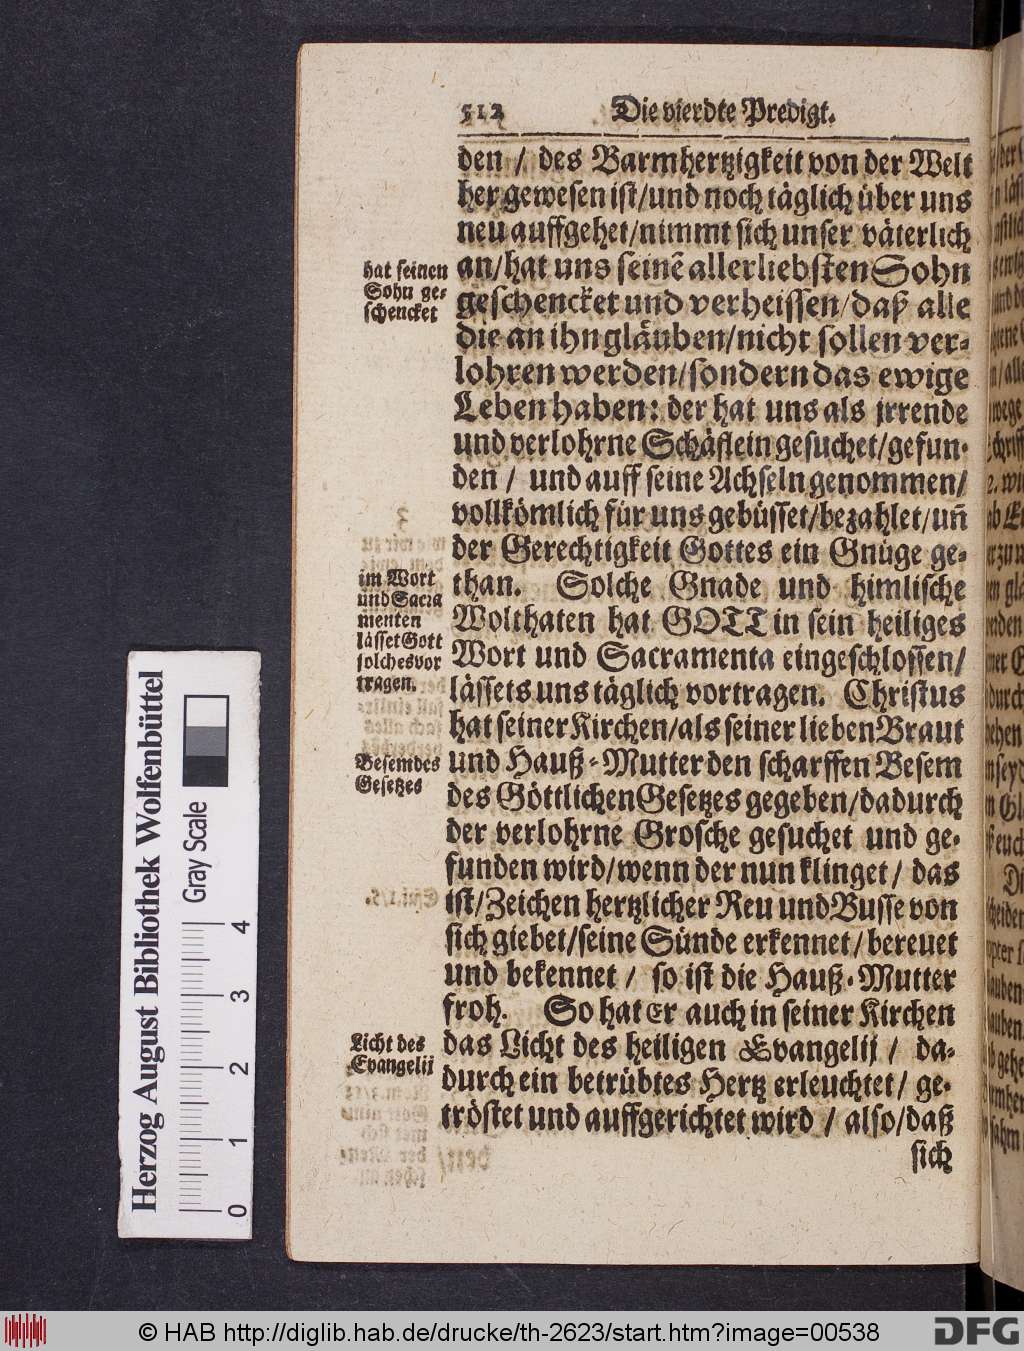 512 Die vierdte Predigt.
den / des Barmhertzigkeit von der Welt
her gewesen ist/und noch täglich über uns
neu auffgehet/nimmt sich unser väterlich
an/hat uns seinẽ allerliebsten Sohn
geschencket und verheissen/daß alle
die an ihn gläuben/nicht sollen ver-
lohren werden/sondern das ewige
Leben haben: der hat uns als jrrende
und verlohrne Schäflein gesuchet/gefun-
den / und auff seine Achseln genommen/
vollkömlich für uns gebüsset/bezahlet/uñ
der Gerechtigkeit Gottes ein Gnüge ge-
than. Solche Gnade und himlische
Wolthaten hat GOTT in sein heiliges
Wort und Sacramenta eingeschlossen/
lässets uns täglich vortragen. Christus
hat seiner Kirchen/als seiner lieben Braut
und Hauß-Mutter den scharffen Besem
des Göttlichen Gesetzes gegeben/dadurch
der verlohrne Grosche gesuchet und ge-
funden wird/wenn der nun klinget / das
ist/Zeichen hertzlicher Reu und Busse von
sich giebet/seine Sünde erkennet/bereuet
und bekennet / so ist die Hauß-Mutter
froh. So hat Er auch in seiner Kirchen
das Licht des heiligen Evangelij / da-
durch ein betrübtes Hertz erleuchtet/ ge-
tröstet und auffgerichtet wird / also/daß
sich
hat seinen
Sohn ge-
schencket
im Wort
und Sacra
menten
lässet Gott
solches vor
tragen.
Besem des
Gesetzes
Licht des
Evangelij
Herzog August Bibliothek Wolfenbüttel
Gray Scale
0 1 2 3 4
© HAB http://diglib.hab.de/drucke/th-2623/start.htm?image=00538
DFG